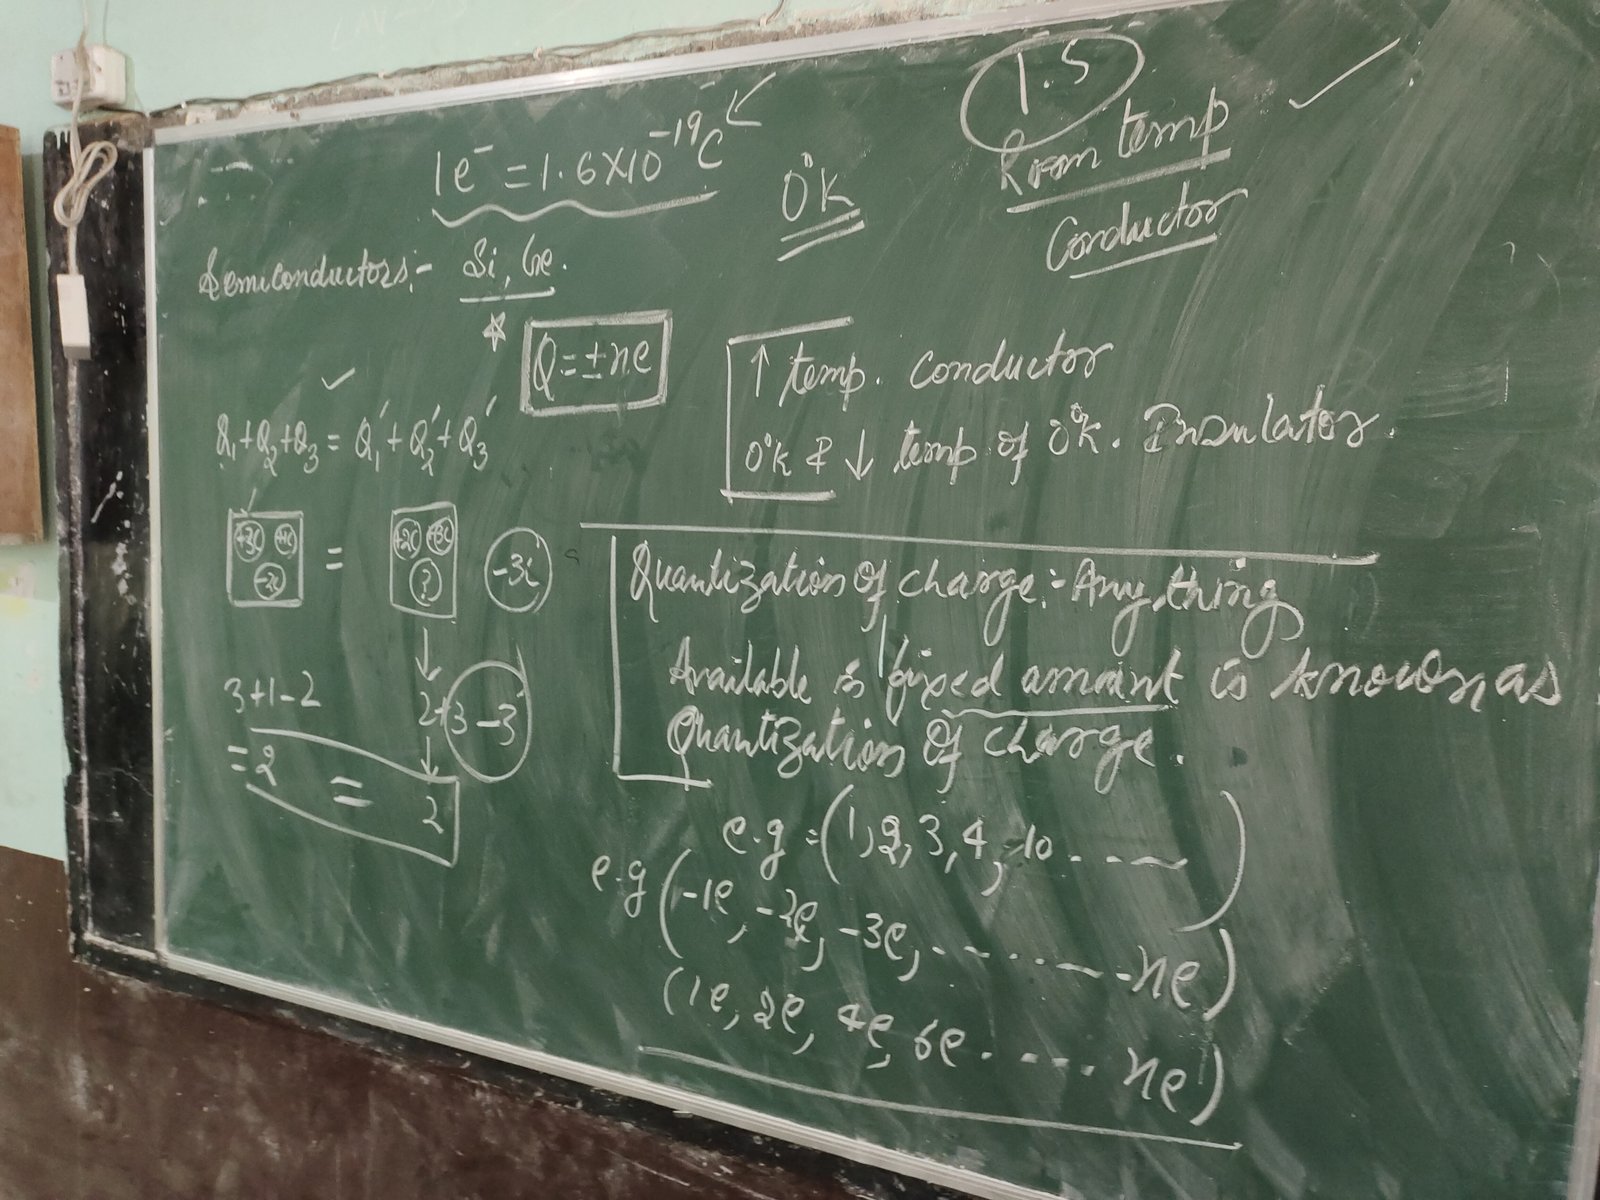 1.5
1e⁻ = 1.6×10⁻¹⁹C
0°k
Room temp
Conductor
Semiconductors:- Si, Ge.
Q = ±ne
Q₁+Q₂+Q₃ = Q₁'+Q₂'+Q₃'
↑ temp. conductor
0°k & ↓ temp of 0°k. Insulator.
+3c +1c
-2c
=
+2c +3c
?
-3c
3+1-2
= 2
=
2+3-3
2
Quantization Of charge:- Any thing
Available is fixed amount is known as
Quantization Of charge.
e.g = (1, 2, 3, 4, 10 .....)
e.g (-1e, -2e, -3e, ........ -ne)
(1e, 2e, 4e, 6e ..... ne)